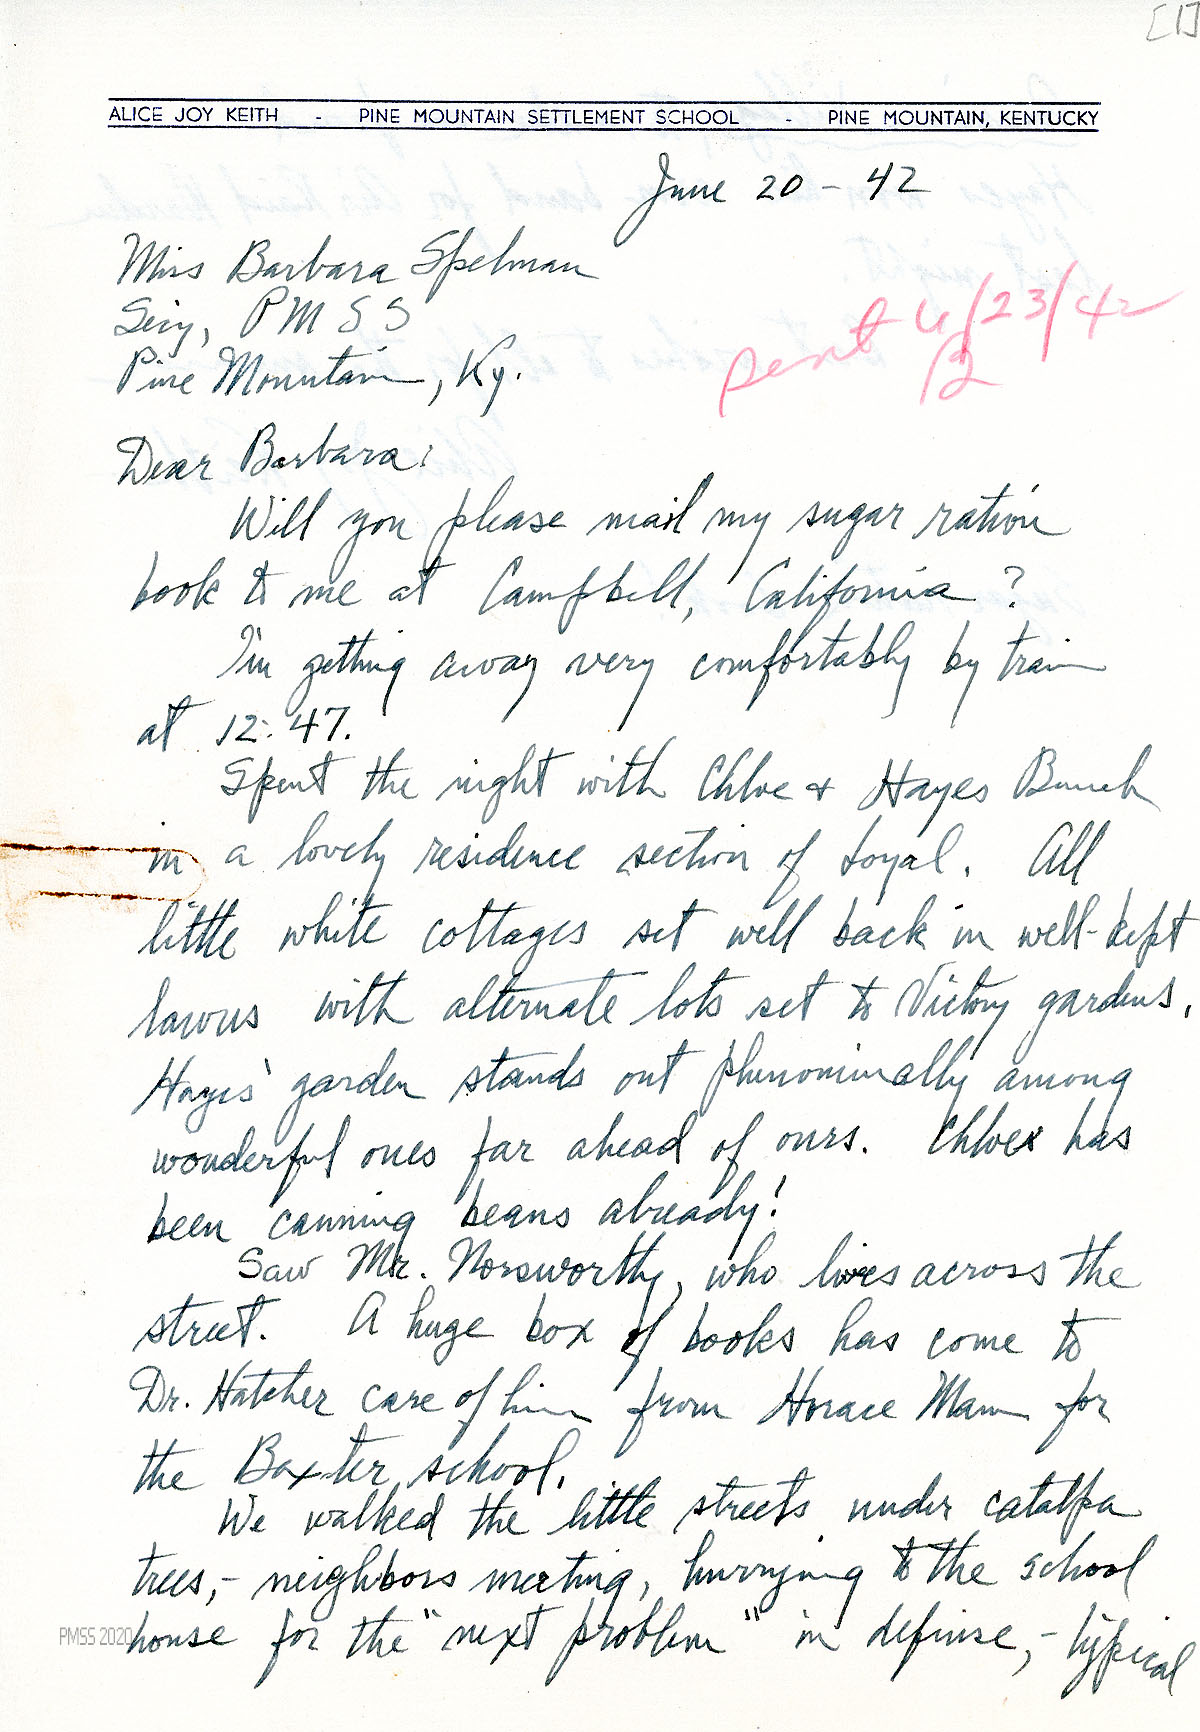 [1]
ALICE JOY KEITH - PINE MOUNTAIN SETTLEMENT SCHOOL - PINE MOUNTAIN, KENTUCKY
June 20 - 42
Miss Barbara Spelman
Secy, P M S S
Pine Mountain, Ky.
sent 6/23/42
B
Dear Barbara:
Will you please mail my sugar ration
book to me at Campbell, California?
I'm getting away very comfortably by train
at 12:47.
Spent the night with Chloe & Hayes Bunch
in a lovely residence section of Loyal. All
little white cottages set well back in well-kept
lawns with alternate lots set to Victory gardens.
Hayes' garden stands out phenominally among
wonderful ones far ahead of ours. Chloe has
been canning beans already!
Saw Mr. Norsworthy, who lives across the
street. A huge box of books has come to
Dr. Hatcher care of him from Horace Mann for
the Baxter school.
We walked the little streets under catalpa
trees,- neighbors meeting, hurrying to the school
house for the "next problem" in defense,- typical
PMSS 2020